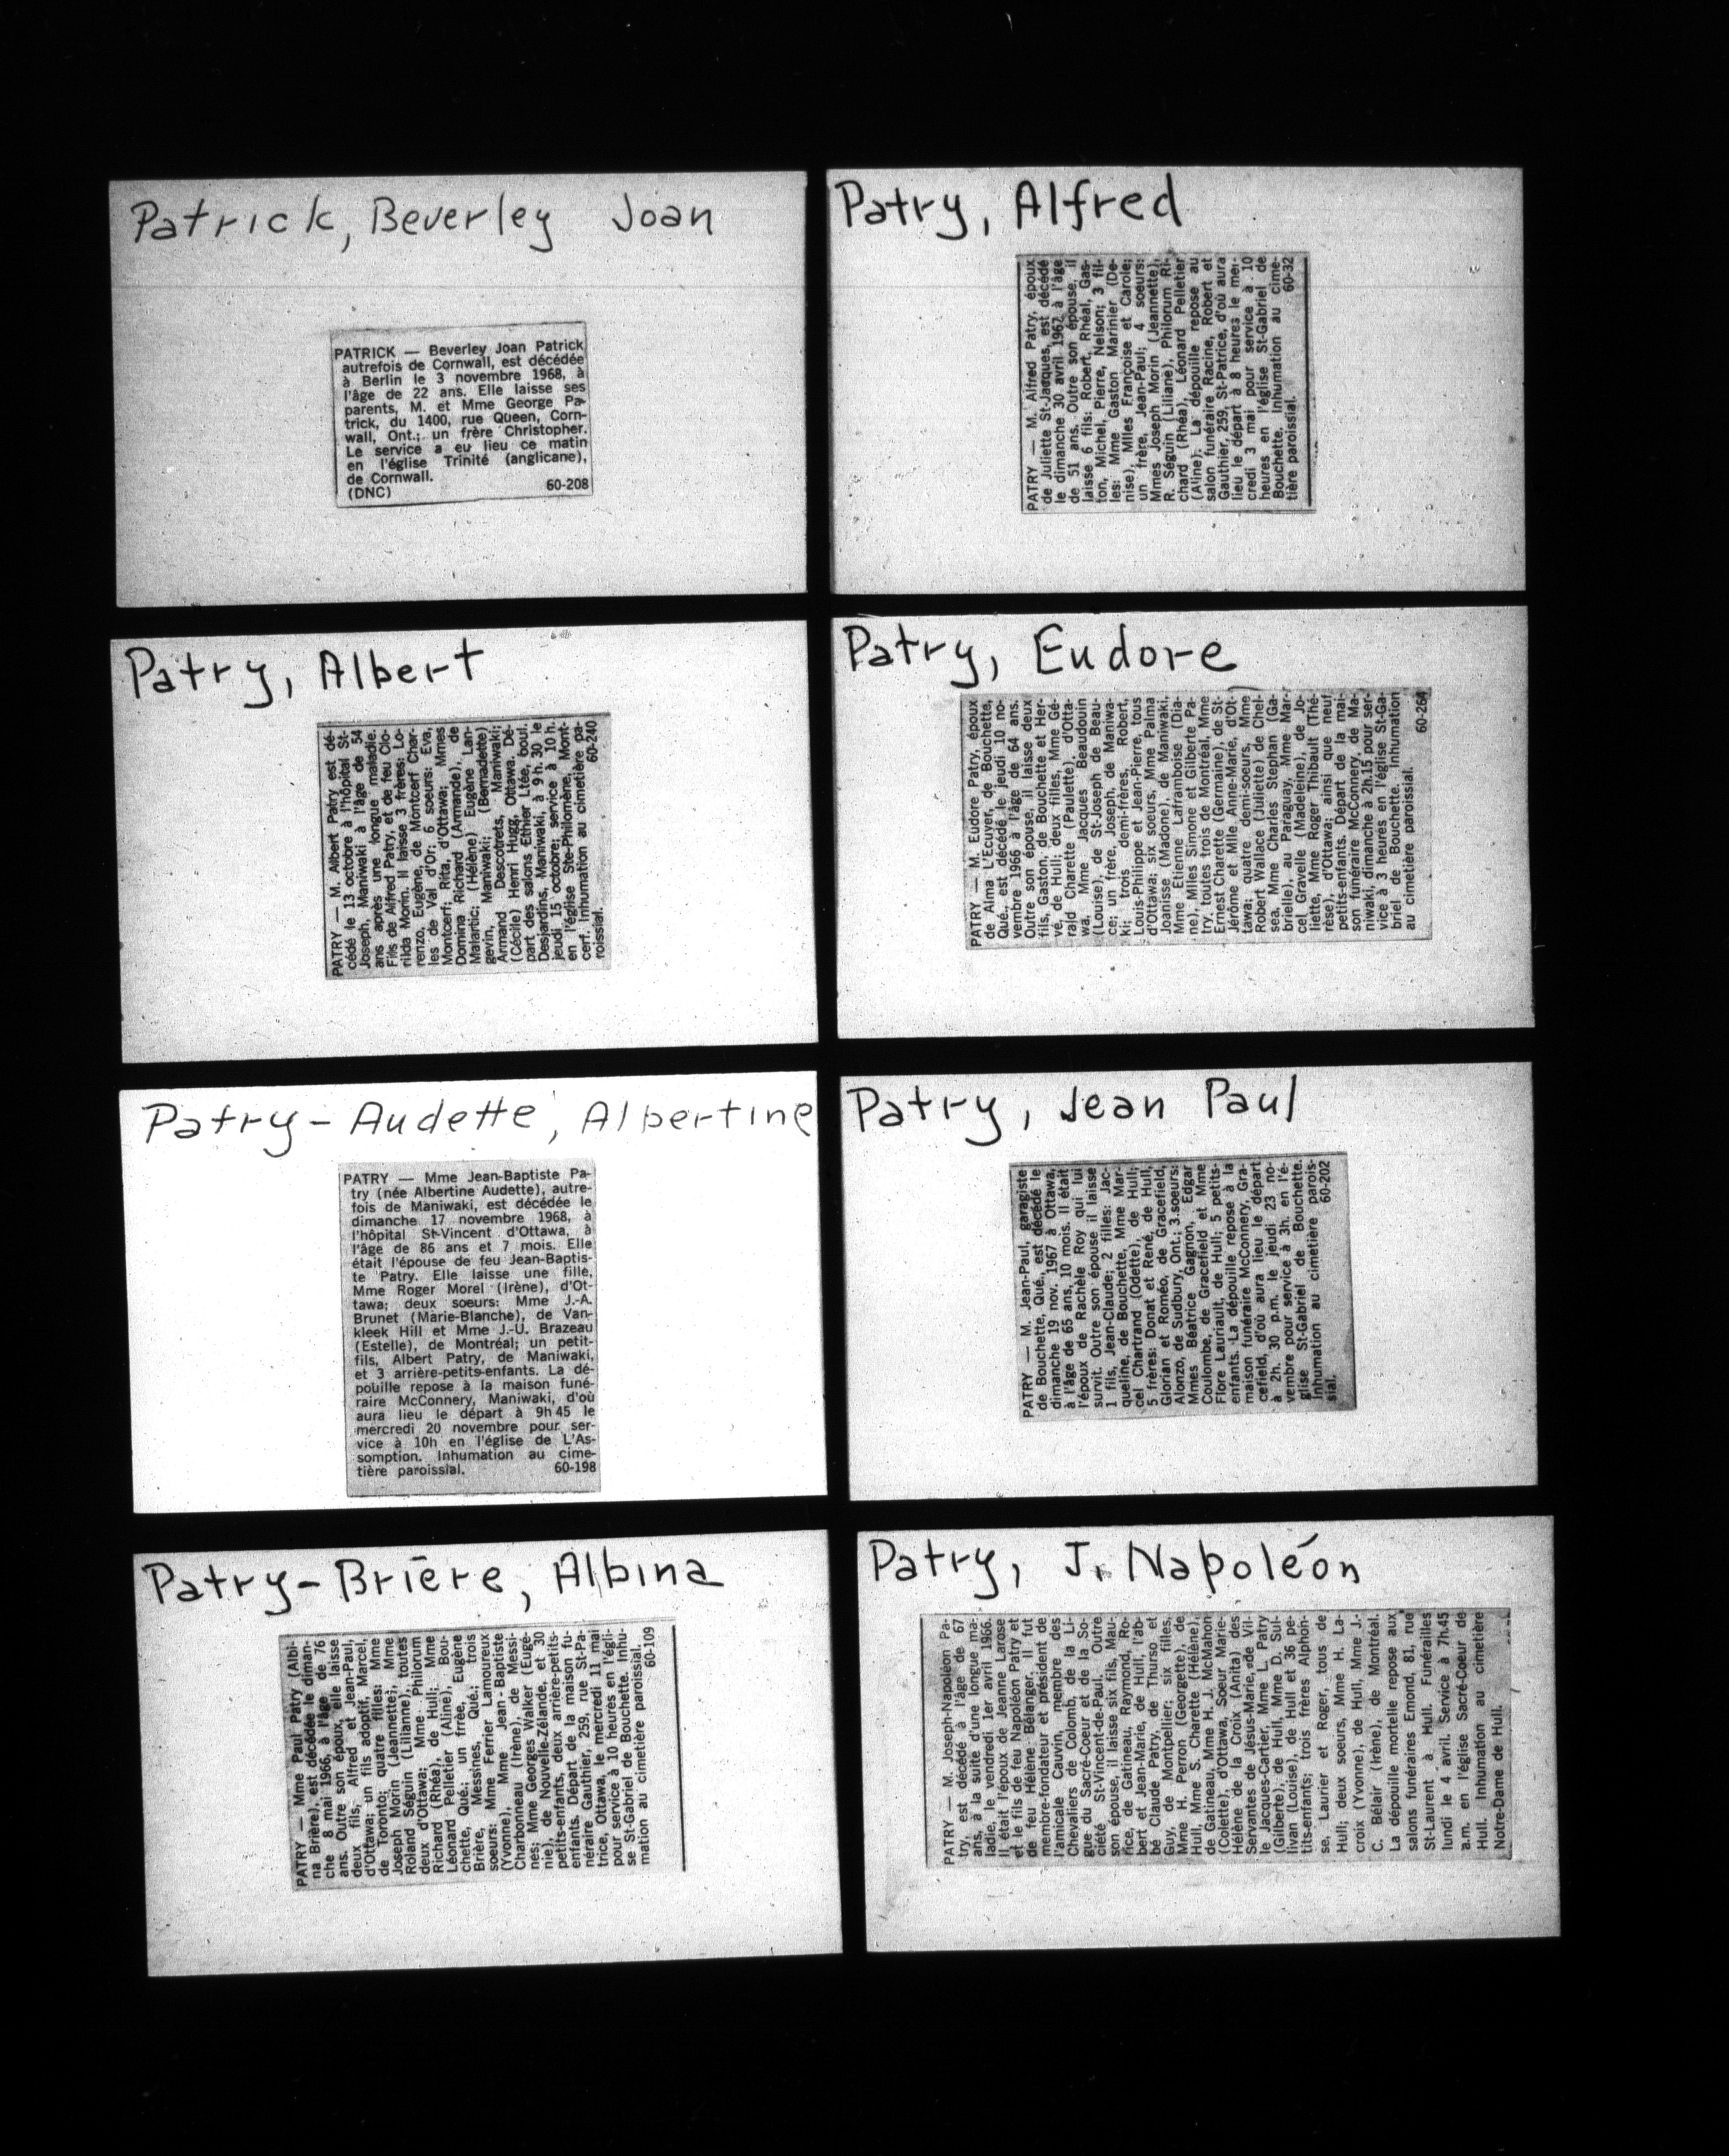 Patrick, Beverley Joan
PATRICK — Beverley Joan Patrick
autrefois de Cornwall, est décédée
à Berlin le 3 novembre 1968, à
l'âge de 22 ans. Elle laisse ses
parents, M. et Mme George Pa-
trick, du 1400, rue Queen, Corn-
wall, Ont.; un frère Christopher.
Le service a eu lieu ce matin
en l'église Trinité (anglicane),
de Cornwall.
(DNC) 60-208
Patry, Alfred
PATRY — M. Alfred Patry, époux
de Juliette St-Jacques, est décédé
le dimanche 30 avril 1967 à l'âge
de 51 ans. Outre son épouse, il
laisse 6 fils: Robert, Rhéal, Gas-
ton, Michel, Pierre, Nelson; 3 fil-
les: Mme Gaston Marinier (De-
nise), Mlles Françoise et Carole;
un frère, Jean-Paul; 4 soeurs:
Mmes Joseph Morin (Jeannette),
R. Séguin (Liliane), Philorum Ri-
chard (Rhéa), Léonard Pelletier
(Aline). La dépouille repose au
salon funéraire Racine, Robert et
Gauthier, 259, St-Patrice, d'où aura
lieu le départ à 8 heures le mer-
credi 3 mai pour service à 10
heures en l'église St-Gabriel de
Bouchette. Inhumation au cime-
tière paroissial. 60-32
Patry, Albert
PATRY — M. Albert Patry est dé-
cédé le 13 octobre à l'hôpital St-
Joseph, Maniwaki à l'âge de 54
ans après une longue maladie.
Fils de Alfred Patry, et de feu Clo-
rilda Morin. Il laisse 3 frères: Lo-
renzo, Eugène, de Montcerf Char-
les de Val d'Or; 6 soeurs: Eva,
Montcerf; Rita, d'Ottawa; Mmes
Domina Richard (Armande), de
Malartic; (Hélène) Eugène Lan-
gevin, Maniwaki; (Bernadette)
Armand Descotrets, Maniwaki;
(Cécile) Henri Hugg, Ottawa. Dé-
part des salons Ethier Ltée, boul.
Desjardins, Maniwaki, à 9 h. 30 le
jeudi 15 octobre; service à 10 h.
en l'église Ste-Philomène, Mont-
cerf. Inhumation au cimetière pa-
roissial. 60-240
Patry, Eudore
PATRY — M. Eudore Patry, époux
de Alma L'Ecuyer, de Bouchette,
Qué., est décédé le jeudi 10 no-
vembre 1966 à l'âge de 64 ans.
Outre son épouse, il laisse deux
fils, Gaston, de Bouchette et Her-
vé, de Hull; deux filles, Mme Gé-
rald Charette (Paulette), d'Otta-
wa, Mme Jacques Beaudouin
(Louise), de St-Joseph de Beau-
ce; un frère, Joseph, de Maniwa-
ki; trois demi-frères, Robert,
Louis-Philippe et Jean-Pierre, tous
d'Ottawa; six soeurs, Mme Palma
Joanisse (Madone), de Maniwaki,
Mme Etienne Laframboise (Dia-
ne), Mlles Simone et Gilberte Pa-
try, toutes trois de Montréal, Mme
Ernest Charette (Germaine), de St-
Jérôme et Mlle Anne-Marie, d'Ot-
tawa; quatre demi-soeurs, Mme
Robert Wallace (Juliette) de Chel-
sea, Mme Charles Stephan (Ga-
brielle), au Paraguay, Mme Mar-
cel Gravelle (Madeleine), de Jo-
liette, Mme Roger Thibault (Thé-
rèse), d'Ottawa; ainsi que neuf
petits-enfants. Départ de la mai-
son funéraire McConnery, de Ma-
niwaki, dimanche à 2h.15 pour ser-
vice à 3 heures en l'église St-Ga-
briel de Bouchette. Inhumation
au cimetière paroissial. 60-264
Patry-Audette, Albertine
PATRY — Mme Jean-Baptiste Pa-
try (née Albertine Audette), autre-
fois de Maniwaki, est décédée le
dimanche 17 novembre 1968, à
l'hôpital St-Vincent d'Ottawa, à
l'âge de 86 ans et 7 mois. Elle
était l'épouse de feu Jean-Baptis-
te Patry. Elle laisse une fille,
Mme Roger Morel (Irène), d'Ot-
tawa; deux soeurs: Mme J.-A.
Brunet (Marie-Blanche), de Van-
kleek Hill et Mme J.-U. Brazeau
(Estelle), de Montréal; un petit-
fils, Albert Patry, de Maniwaki,
et 3 arrière-petits-enfants. La dé-
pouille repose à la maison funé-
raire McConnery, Maniwaki, d'où
aura lieu le départ à 9h45 le
mercredi 20 novembre pour ser-
vice à 10h en l'église de L'As-
somption. Inhumation au cime-
tière paroissial. 60-198
Patry, Jean Paul
PATRY — M. Jean-Paul, garagiste
de Bouchette, Qué., est décédé le
dimanche 19 nov. 1967 à Ottawa,
à l'âge de 65 ans, 10 mois. Il était
l'époux de Rachèle Roy qui lui
survit. Outre son épouse il laisse
1 fils, Jean-Claude; 2 filles: Jac-
queline, de Bouchette, Mme Mar-
cel Chartrand (Odette), de Hull;
5 frères: Donat et René, de Hull,
Glorian et Roméo, de Gracefield,
Alonzo, de Sudbury, Ont.; 3 soeurs:
Mmes Béatrice Gagnon, Edgar
Coulombe, de Gracefield et Mme
Flore Lauriault, de Hull; 5 petits-
enfants. La dépouille repose à la
maison funéraire McConnery, Gra-
cefield, d'où aura lieu le départ
à 2h. 30 p.m. le jeudi 23 no-
vembre pour service à 3h. en l'é-
glise St-Gabriel de Bouchette.
Inhumation au cimetière parois-
sial. 60-202
Patry-Brière, Albina
PATRY — Mme Paul Patry (Albi-
na Brière), est décédée le diman-
che 8 mai 1966, à l'âge de 76
ans. Outre son époux, elle laisse
deux fils, Alfred et Jean-Paul,
d'Ottawa; un fils adoptif, Marcel,
de Toronto; quatre filles: Mme
Joseph Morin (Jeannette), Mme
Roland Séguin (Lilianne), toutes
deux d'Ottawa; Mme Philorum
Richard (Rhéa), de Hull; Mme
Léonard Pelletier (Aline), Bou-
chette, Qué.; un frrèe, Eugène
Brière, Messines, Qué.; trois
soeurs: Mme Ferrier Lamoureux
(Yvonne), Mme Jean-Baptiste
Charbonneau (Irène), de Messi-
nes; Mme Georges Walker (Eugé-
nie), de Nouvelle-Zélande, et 30
petits-enfants, deux arrière-petits-
enfants. Départ de la maison fu-
néraire Gauthier, 259, rue St-Pa-
trice, Ottawa, le mercredi 11 mai
pour service à 10 heures en l'égli-
se St-Gabriel de Bouchette. Inhu-
mation au cimetière paroissial.
60-109
Patry, J. Napoléon
PATRY — M. Joseph-Napoléon Pa-
try, est décédé à l'âge de 67
ans, à la suite d'une longue ma-
ladie, le vendredi 1er avril 1966.
Il était l'époux de Jeanne Larose
et le fils de feu Napoléon Patry et
de feu Hélène Bélanger. Il fut
membre-fondateur et président de
l'amicale Cauvin, membre des
Chevaliers de Colomb, de la Li-
gue du Sacré-Coeur et de la So-
ciété St-Vincent-de-Paul. Outre
son épouse, il laisse six fils, Mau-
rice, de Gatineau, Raymond, Ro-
bert et Jean-Marie, de Hull, l'ab-
bé Claude Patry, de Thurso et
Guy, de Montpellier; six filles,
Mme H. Perron (Georgette), de
Hull, Mme S. Charette (Hélène),
de Gatineau, Mme H. J. McMahon
(Colette), d'Ottawa, Soeur Marie-
Hélène de la Croix (Anita) des
Servantes de Jésus-Marie, de Vil-
le Jacques-Cartier, Mme L. Patry
(Gilberte), de Hull, Mme D. Sul-
livan (Louise), de Hull et 36 pe-
tits-enfants; trois frères Alphon-
se, Laurier et Roger, tous de
Hull; deux soeurs, Mme H. La-
croix (Yvonne), de Hull, Mme J.-
C. Bélair (Irène), de Montréal.
La dépouille mortelle repose aux
salons funéraires Emond, 81, rue
St-Laurent à Hull. Funérailles
lundi le 4 avril. Service à 7h.45
a.m. en l'église Sacré-Coeur de
Hull. Inhumation au cimetière
Notre-Dame de Hull.